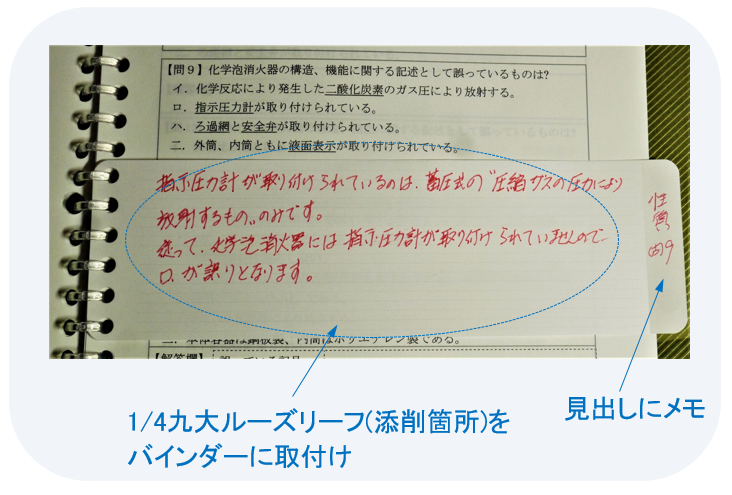 【問９】化学泡消火器の構造、機能に関する記述として誤っているものは?
イ．化学反応により発生した二酸化炭素のガス圧により放射する。
ロ．指示圧力計が取り付けられている。
ハ．ろ過網と安全弁が取り付けられている。
ニ．外筒、内筒ともに液面表示が取り付けられている。
指示圧力計が取り付けられているのは、蓄圧式の"圧縮ガスの圧力により
放射するもの"のみです。
従って、化学泡消火器には指示圧力計が取り付けられていませんので
ロ．が誤りとなります。
性質
問9
ニ．本体容器は鋼板製、内筒はポリエチレン製である。
【解答欄】
1/4九大ルーズリーフ(添削箇所)を
バインダーに取付け
見出しにメモ